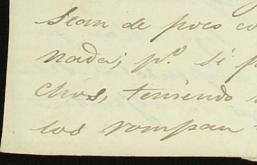 sean de poco co
nada; pº. si p
chos, teniendo
los rompan